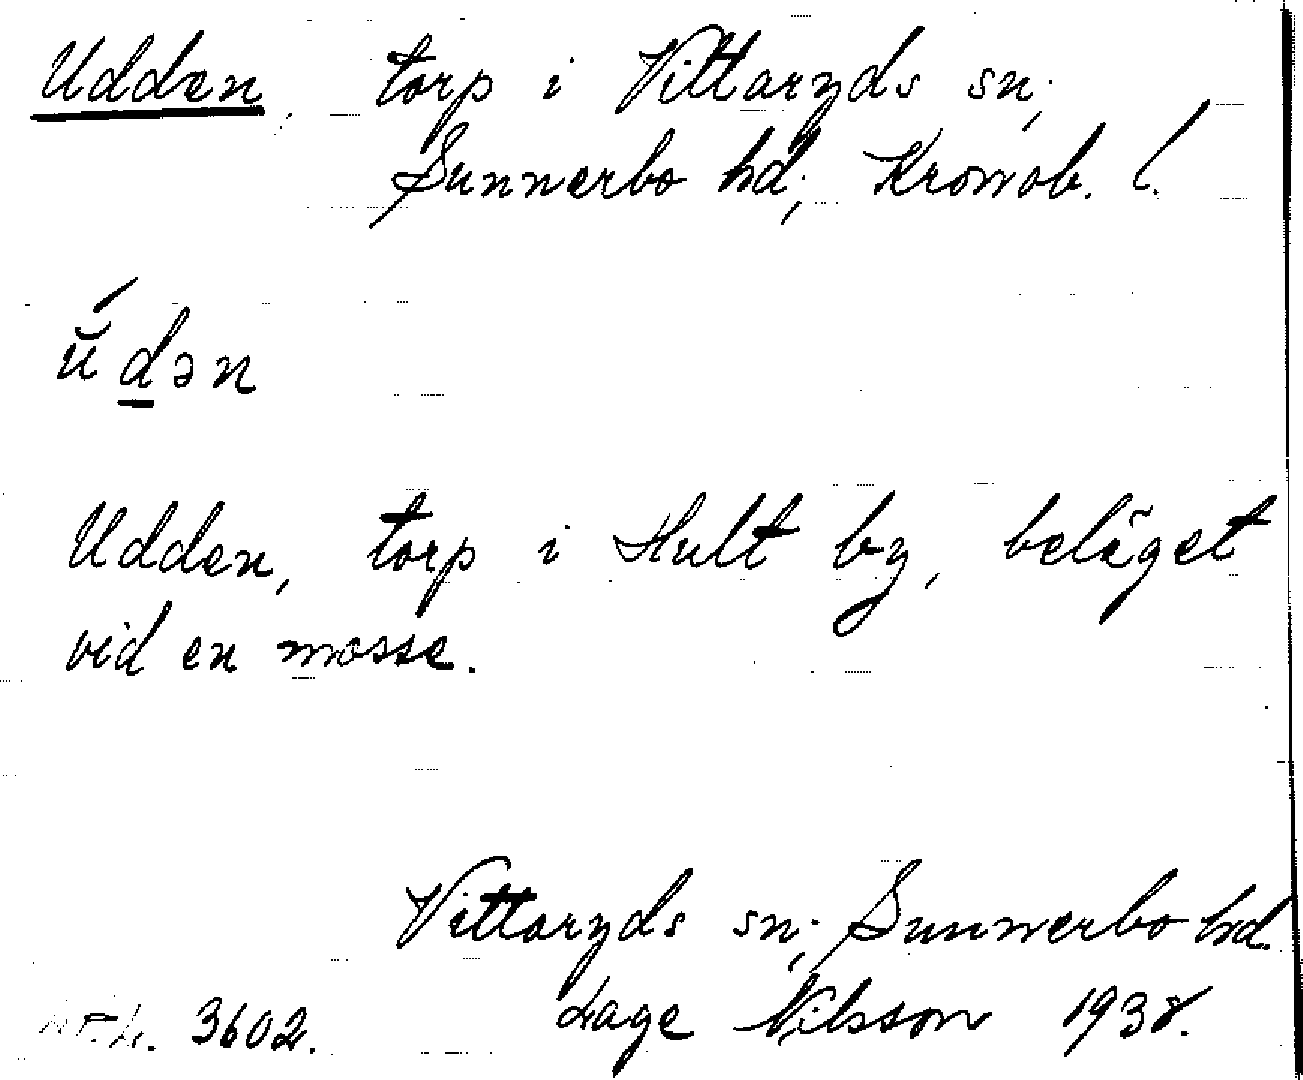 Udden, torp i Vittaryds sn;
Sunnerbo hd; Kronob. l.
ŭ́dən
Udden, torp i Hult by, beläget
vid en mosse.
Vittaryds sn; Sunnerbo hd.
3602. Lage Nilsson 1938.